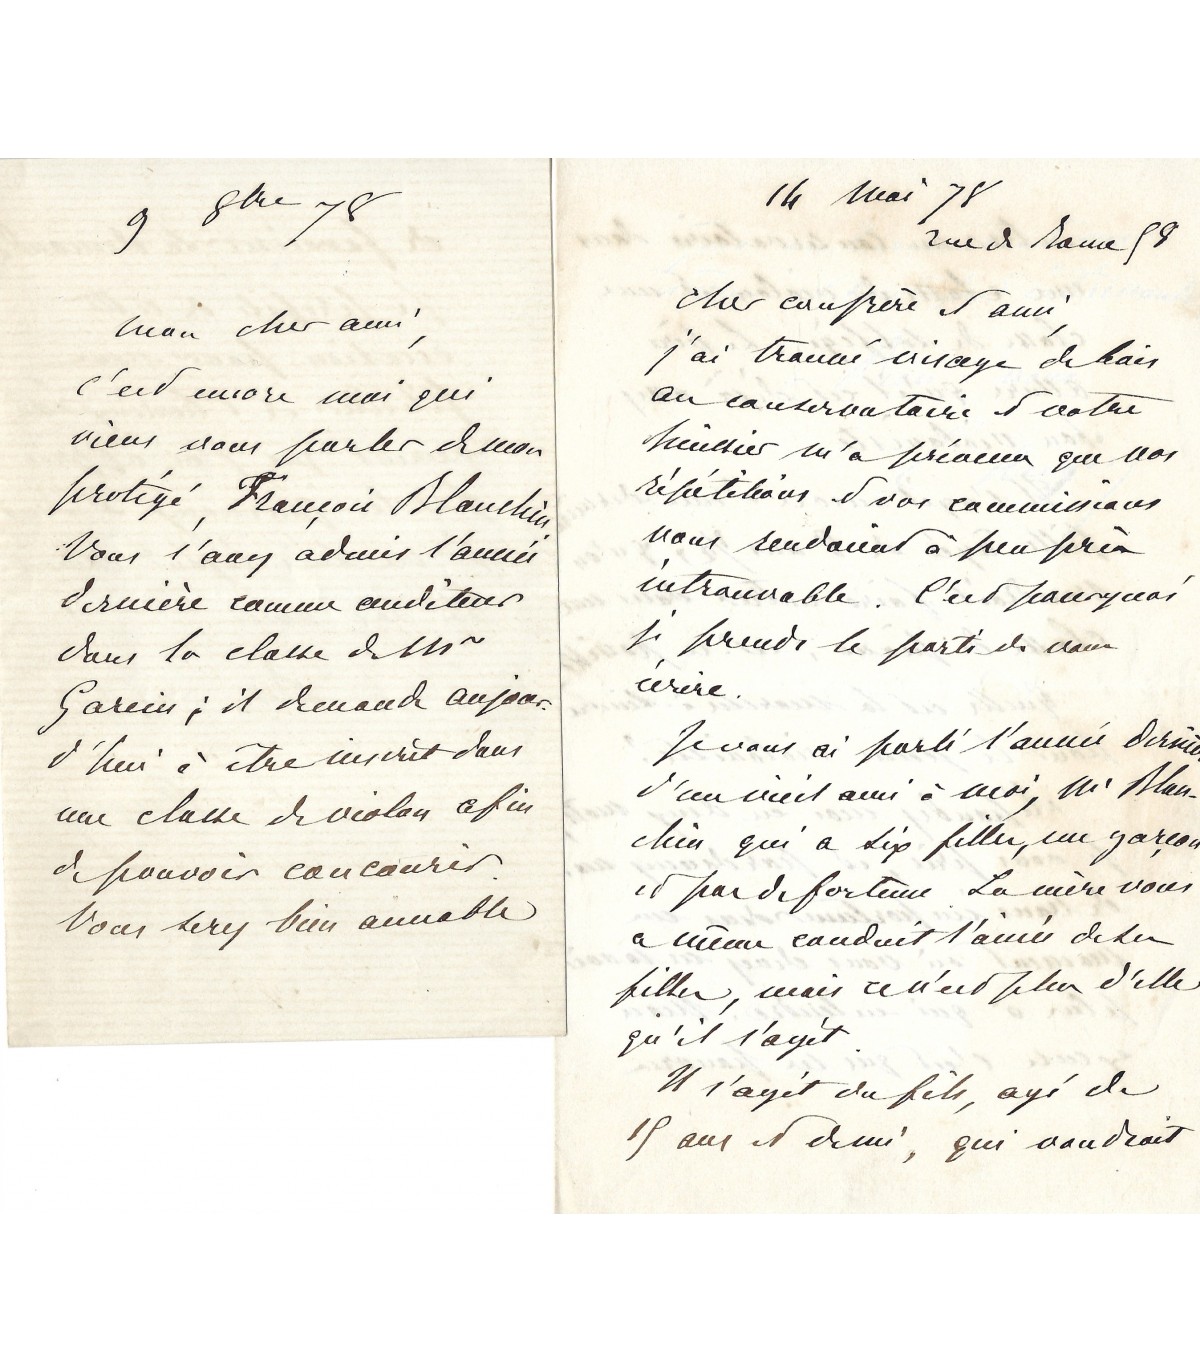 9 8bre 78
Mon cher ami,
c'est encore moi qui
viens vous parler de mon
protégé, François Blanchin
Vous l'avez admis l'année
dernière comme auditeur
dans la classe de Mr
Garcin ; il demande aujour-
d'hui à être inscrit dans
une classe de violon afin
de pouvoir concourir.
Vous serez bien aimable
14 Mai 78
rue de Rome 58
Cher confrère et ami,
j'ai trouvé visage de bois
au conservatoire et votre
huissier m'a prévenu que vos
répétitions et vos commissions
vous rendaient à peu près
introuvable. C'est pourquoi
je prends le parti de vous
écrire.
Je vous ai parlé l'année dernière
d'un vieil ami à moi, Mr Blan-
chin qui a six filles, un garçon
et pas de fortune. La mère vous
a même conduit l'aînée de ses
filles, mais ce n'est plus d'elle
qu'il s'agit.
Il s'agit du fils, agé de
15 ans et demi, qui voudrait